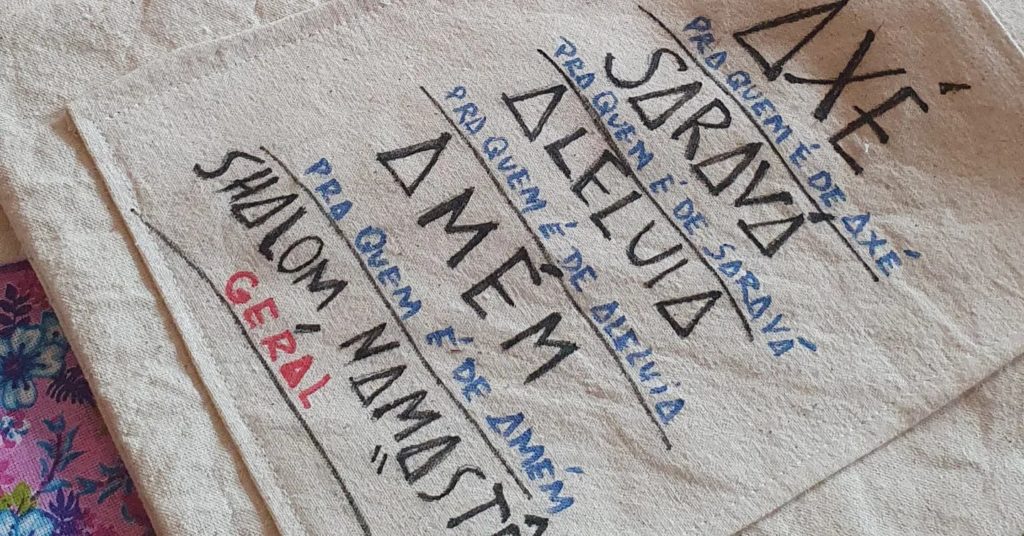 AXÉ
PRA QUEM É DE AXÉ
SARAVÁ
PRA QUEM É DE SARAVÁ
ALELUIA
PRA QUEM É DE ALELUIA
AMÉM
PRA QUEM É DE AMÉM
SHALOM NAMASTÊ
GERAL